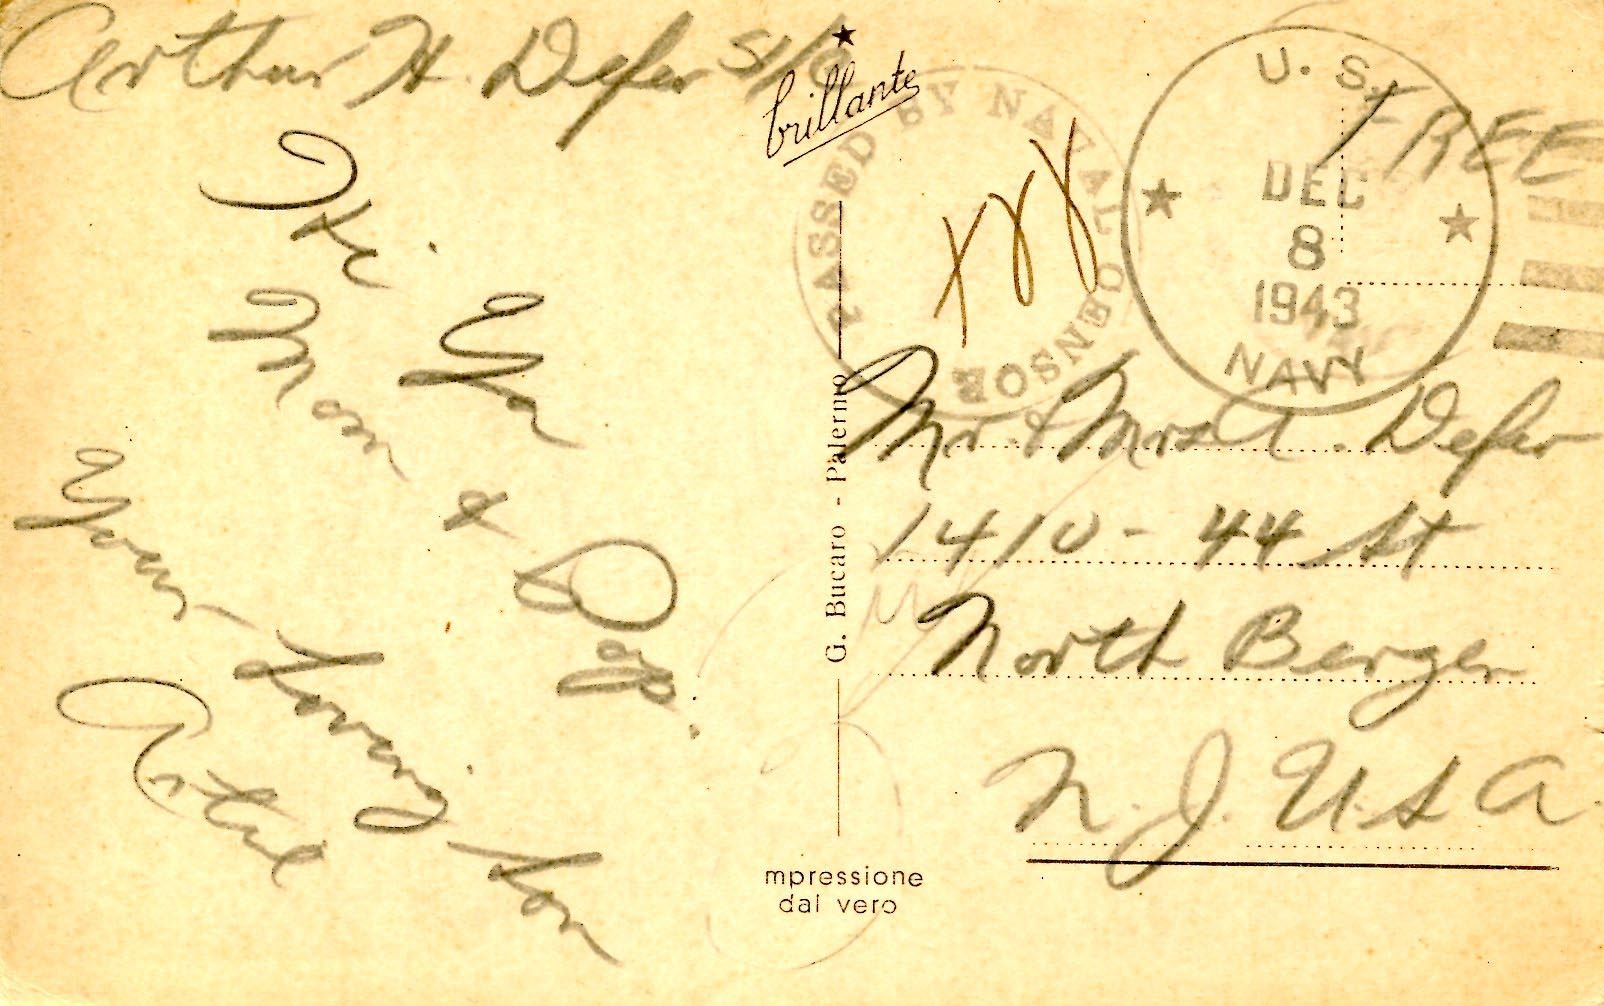 Arthur H. Defer S1/c
Hi Ya
Mom & Pop.
Your Loving Son
Artie
brillante
PASSED BY NAVAL CENSOR
U. S.
DEC
8
1943
NAVY
FREE
Mr. & Mrs A. Defer
1410 - 44 St
North Bergen
N. J. U.S.A.
G. Bucaro - Palermo
mpressione
dal vero